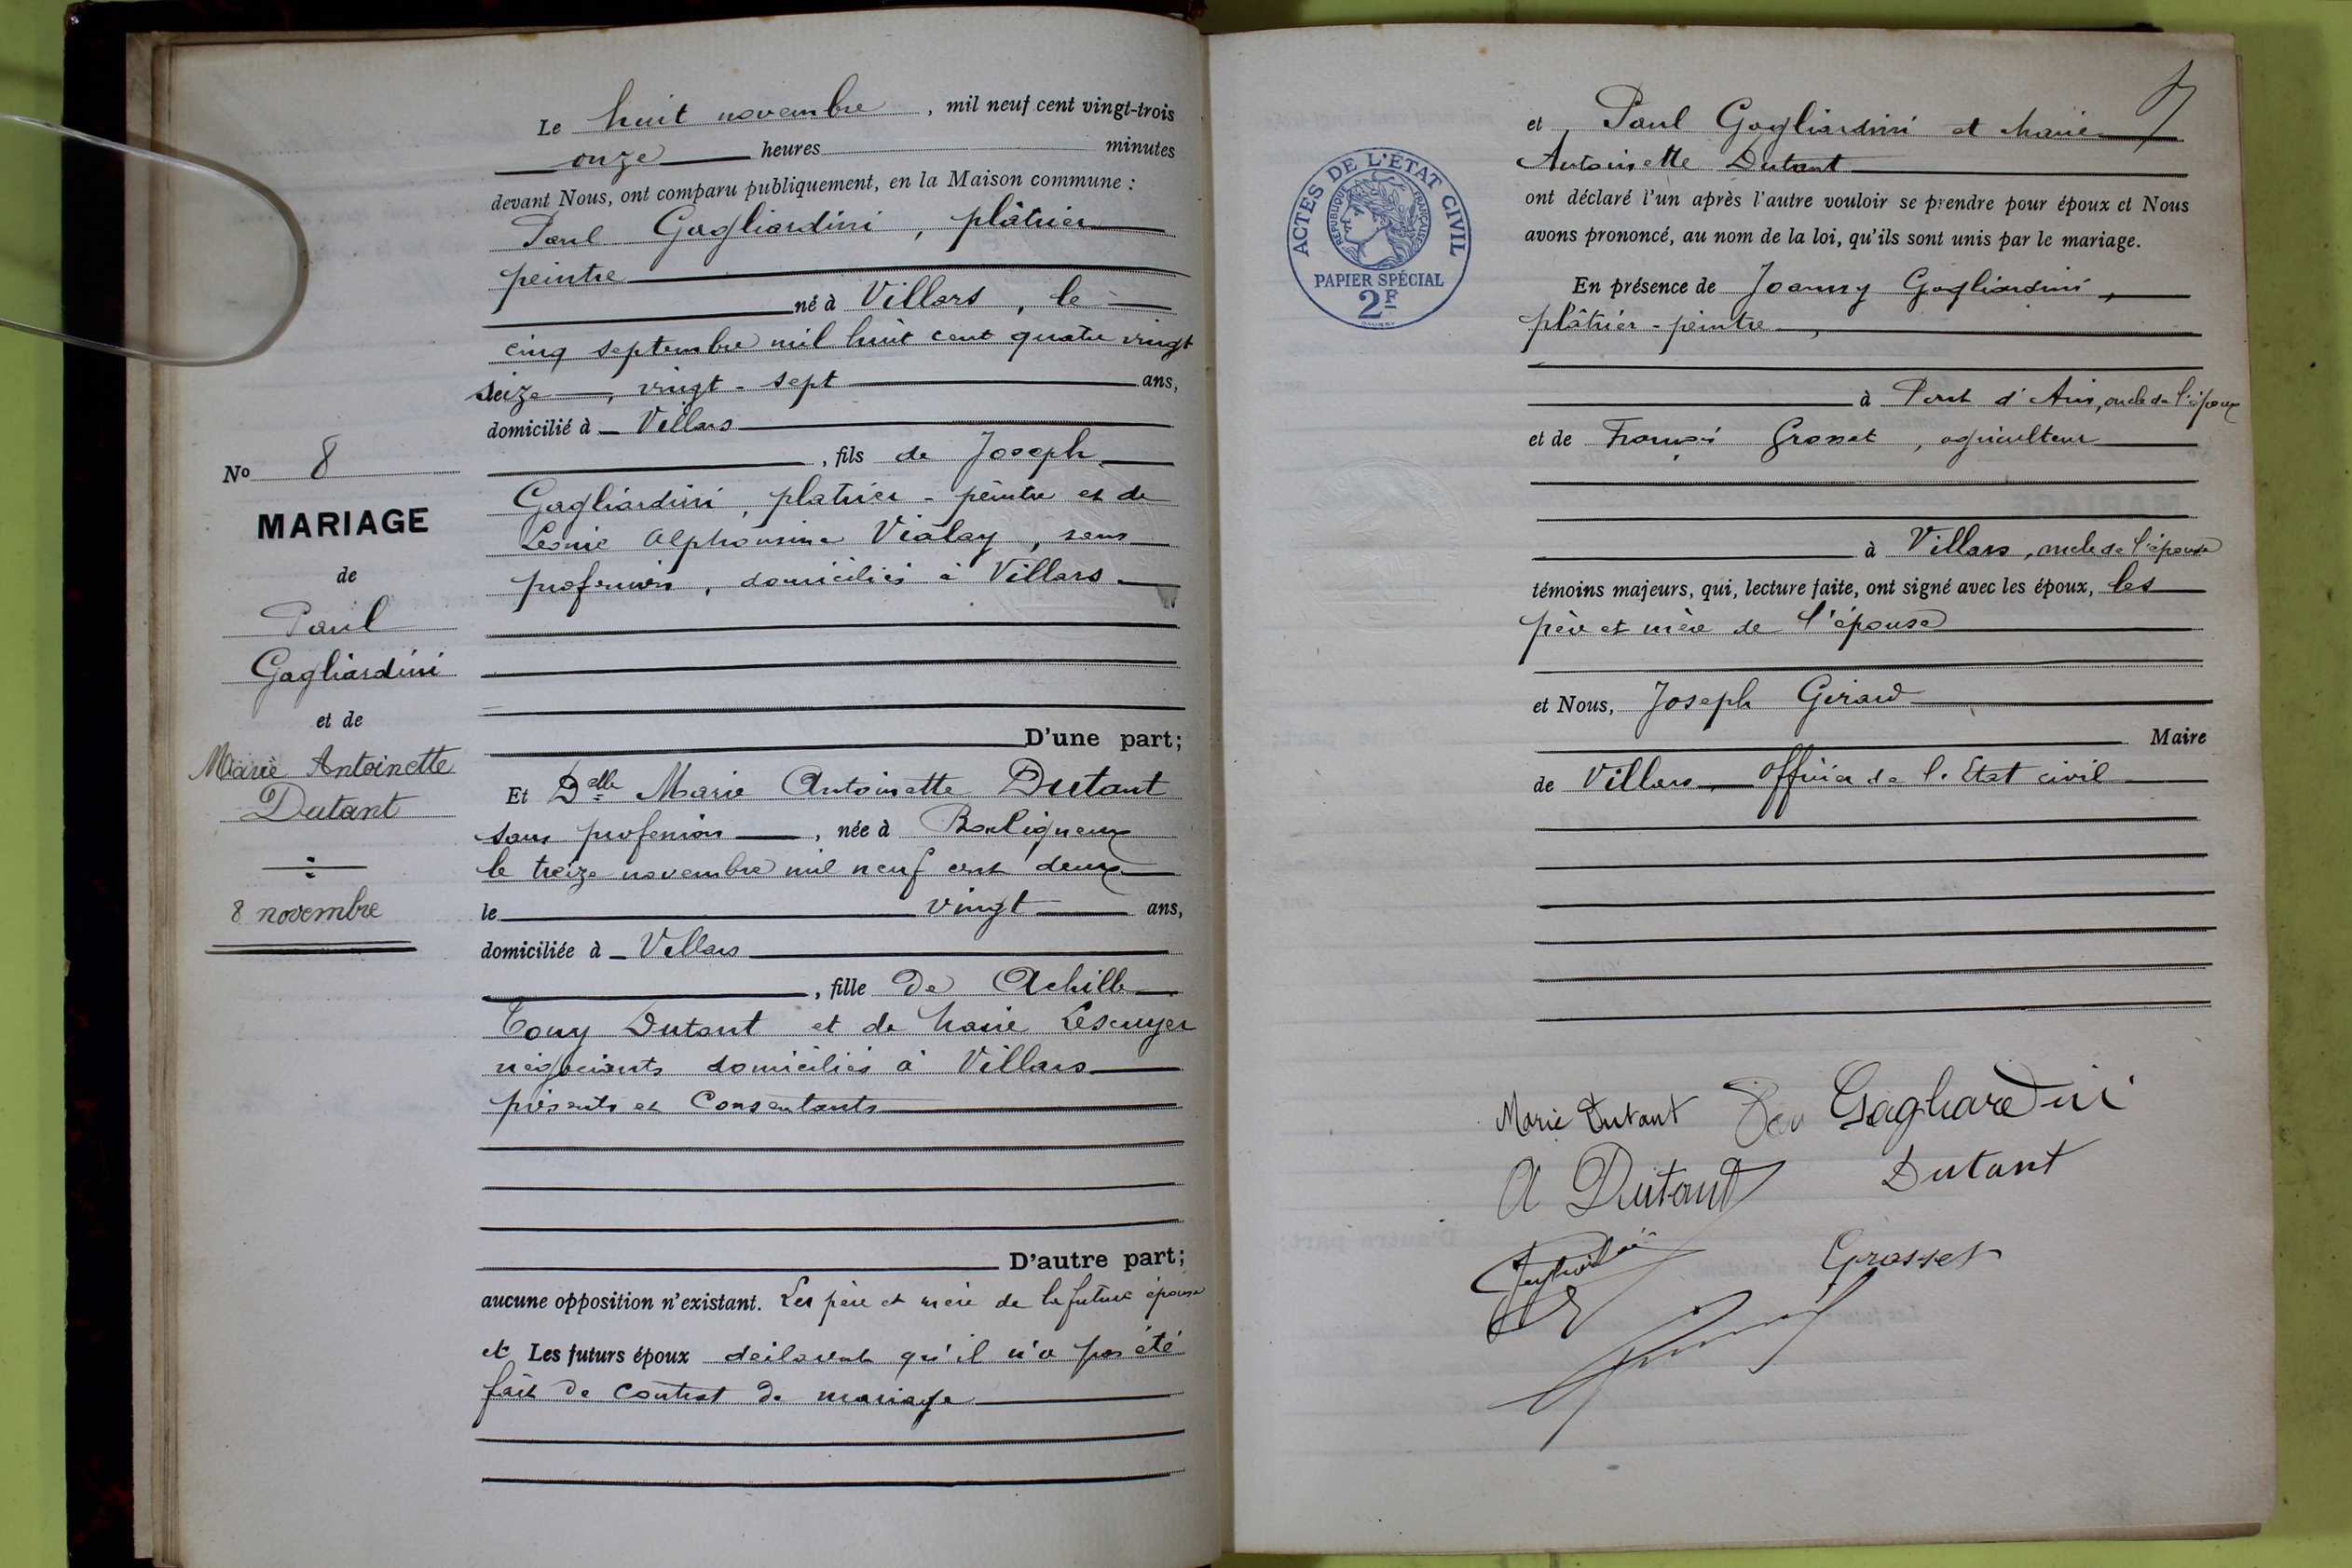 Le huit novembre, mil neuf cent vingt-trois
onze heures minutes
devant Nous, ont comparu publiquement, en la Maison commune :
Paul Gagliardini, plâtrier
peintre
né à Villars, le
cinq septembre mil huit cent quatre vingt
seize, vingt-sept ans,
domicilié à Villars
, fils de Joseph
Gagliardini, platrier-peintre et de
Léonie Alphonsine Vialay, sans
profession, domiciliés à Villars
D'une part;
Et Delle Marie Antoinette Dutant
sans profession, née à Bouligneux
le treize novembre mil neuf cent deux
le vingt ans,
domiciliée à Villars
, fille De Achille
Tony Dutant et de Marie Lescuyer
négociants domiciliés à Villars
présents et Consentants
D'autre part;
aucune opposition n'existant. Les père et mère de la future épouse
et Les futurs époux déclarent qu'il n'a pas été
fait de contrat de mariage
No 8
MARIAGE
de
Paul
Gagliardini
et de
Marie Antoinette
Dutant
8 novembre
et Paul Gagliardini et Marie
Antoinette Dutant
ont déclaré l'un après l'autre vouloir se prendre pour époux et Nous
avons prononcé, au nom de la loi, qu'ils sont unis par le mariage.
En présence de Joanny Gagliardini,
plâtrier-peintre,
à Pont d'Ain, oncle de l'époux
et de François Grosset, agriculteur
à Villars, oncle de l'épouse
témoins majeurs, qui, lecture faite, ont signé avec les époux, les
père et mère de l'épouse
et Nous, Joseph Girard
Maire
de Villars, Officier de l'Etat civil
ACTES DE L'ÉTAT CIVIL
RÉPUBLIQUE FRANÇAISE
PAPIER SPÉCIAL
2F
Marie Dutant Gagliardini
A Dutant Dutant
Grosset